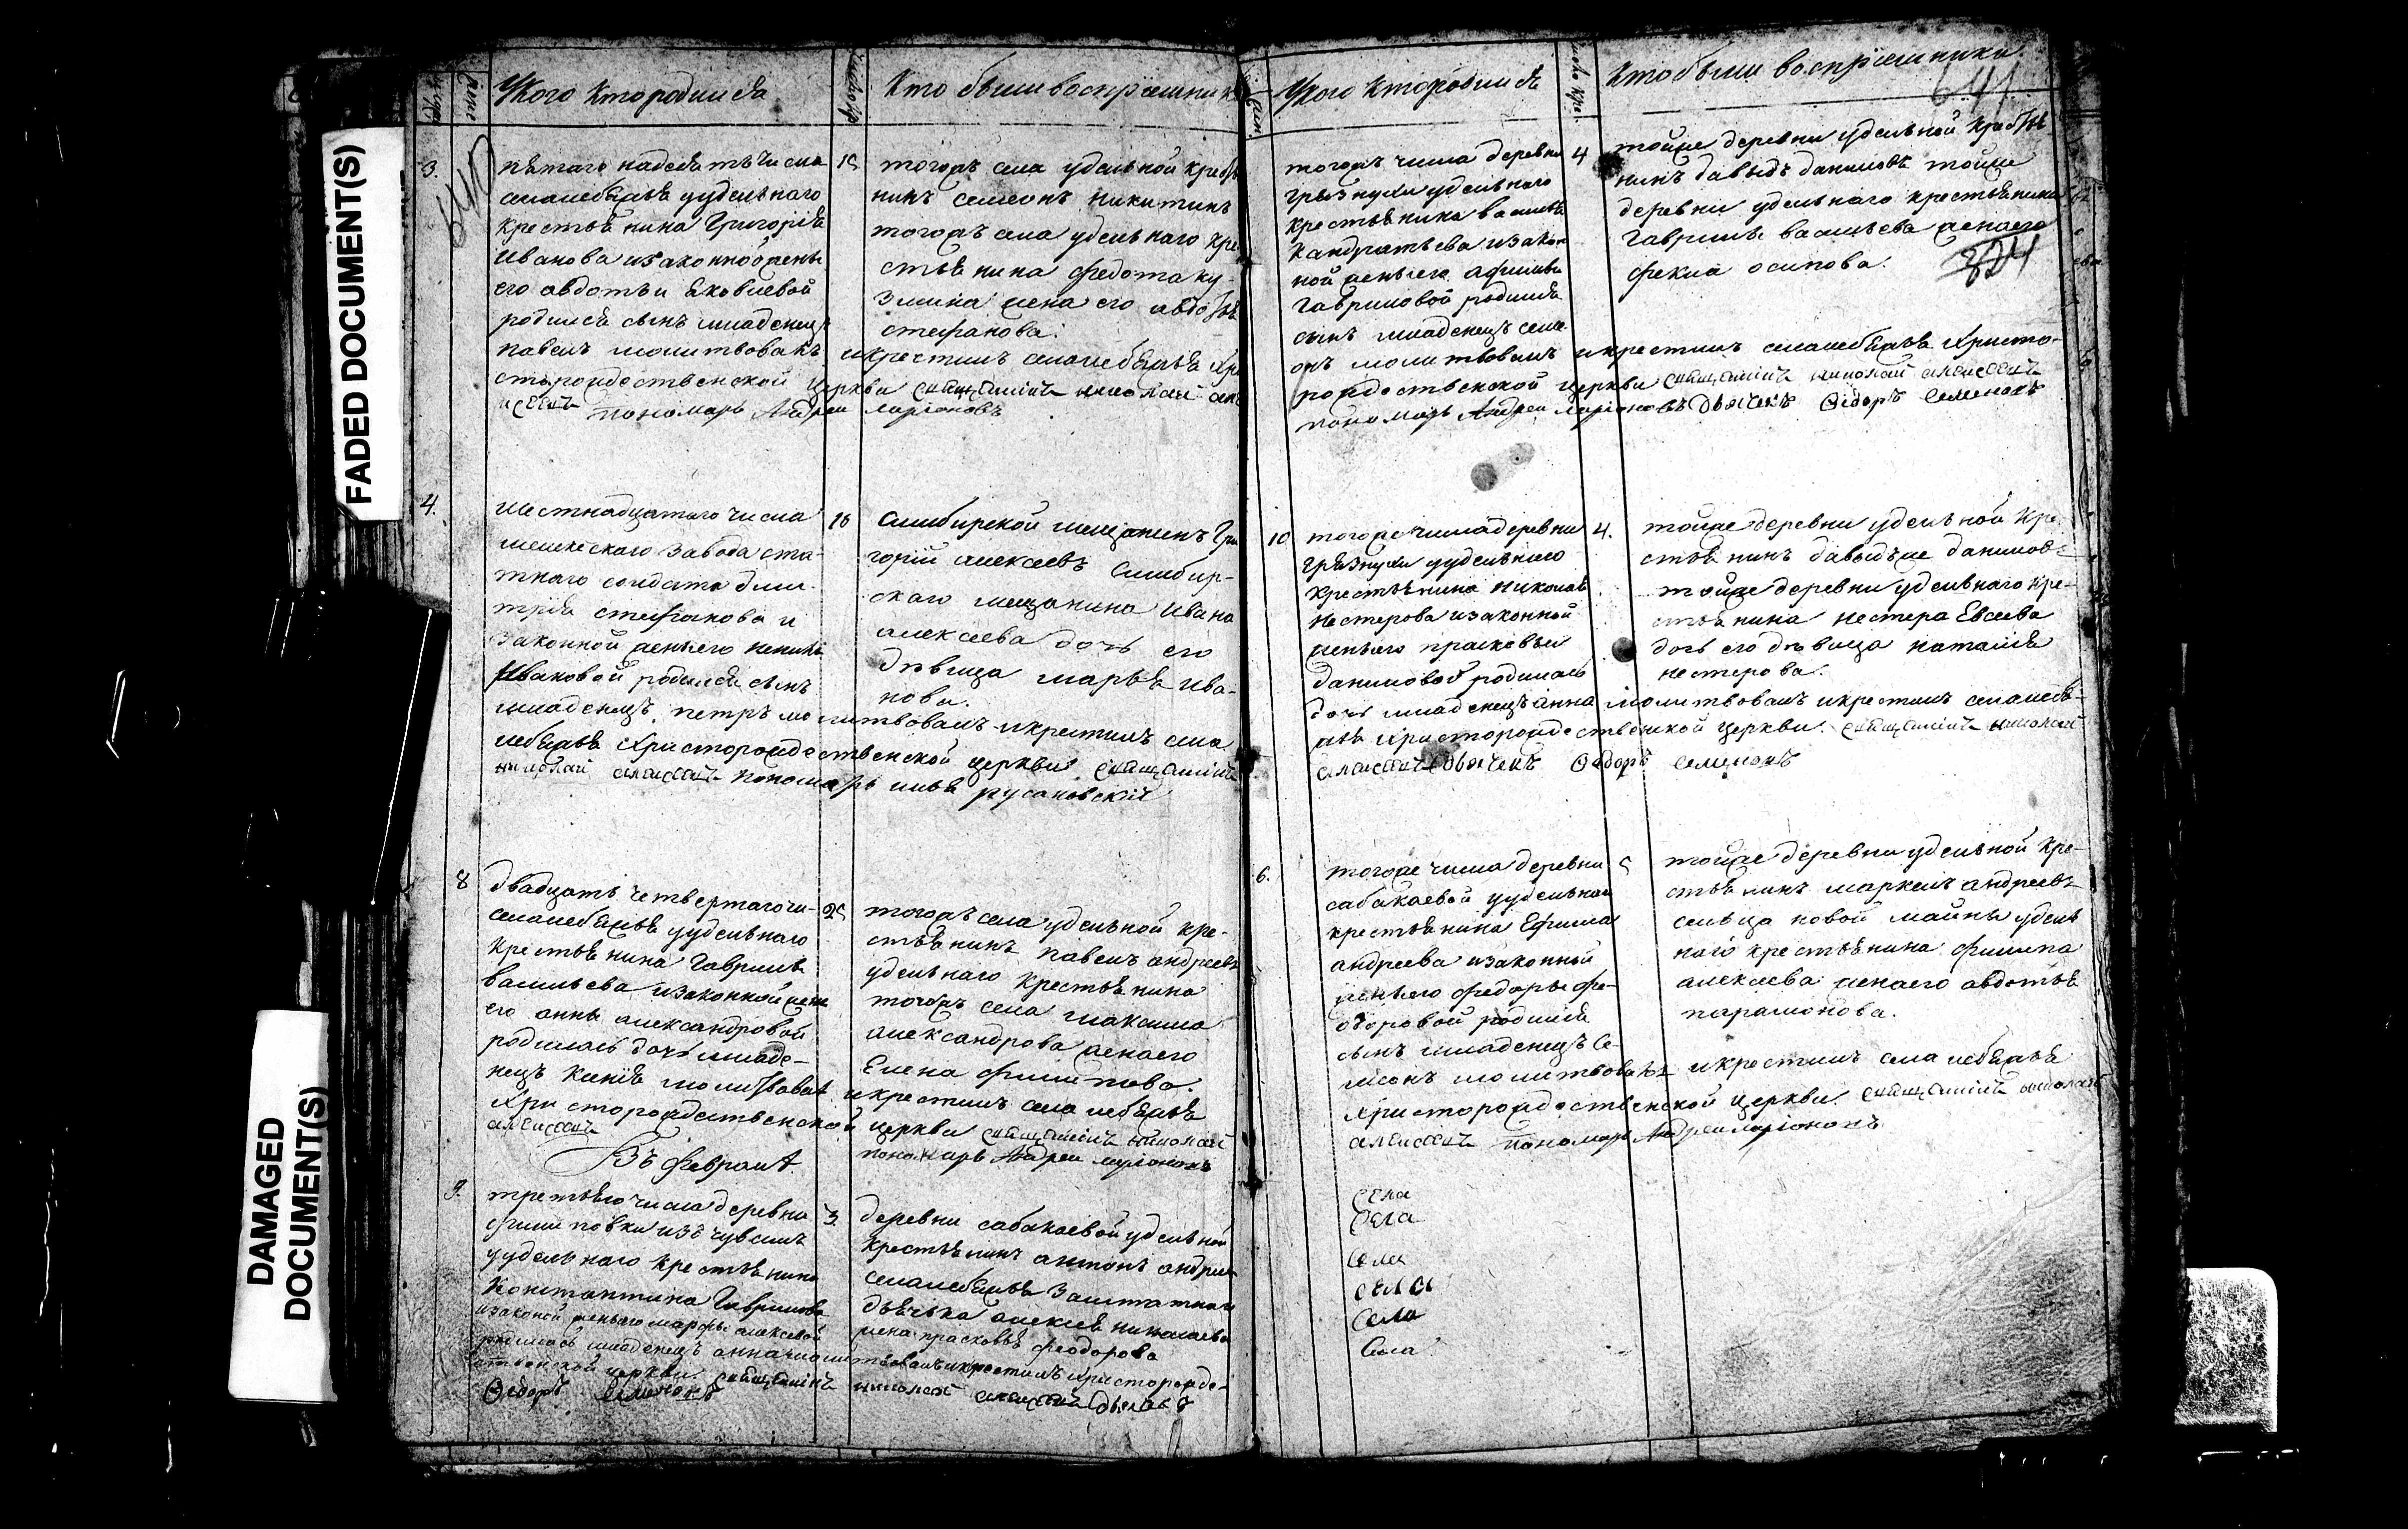 FADED DOCUMENT(S)
DAMAGED DOCUMENT(S)
У кого кто родился
Кто были воспрiемники
640
3.
пятагонадесять числа
села лебяжья у удельнаго
крестьянина Григорiя
Иванова и законной жены
его авдотьи яковлевой
родился сынъ младенецъ
павелъ молитвовалъ и крестилъ села лебяжья Хри
сторождественской церкви священникъ николай але
ксеевъ пономарь Андреи ларiоновъ
15
тогожъ села удельной кресть
нинъ семеонъ никитинъ
тогожъ села удельнаго кре
стьянина федота ку
змина жена его авдотья
стефанова.
4.
шестнадцатаго числа
мелекескаго завода ста
тнаго солдата дми
трiя стефанова и
законной жены его
Ивановой родился сынъ
младенецъ петръ молитвовалъ и крестилъ села
лебяжья Христорождественской церкви священникъ
николай алексеевъ пономарь илья русановскiй
16
Симбирской мещанинъ Гри
горiй алексеевъ Симбир-
скаго мещанина Ивана
алексеева дочь его
девица марья Ива-
нова.
8
двадцать четвертаго чи-
села лебяжья у удельнаго
крестьянина Гаврилы
васильева и законной жены
его анны александровой
родилась дочь младе-
нецъ ксенiя молитвовалъ и крестилъ села лебяжья
Христорождественской церкви священникъ николай
алексеевъ пономарь Андреи ларiоновъ
25
тогожъ села удельной кре-
стьянинъ павелъ андреевъ
удельнаго крестьянина
тогожъ села максима
александрова жена его
Елена филипова.
Въ февралѣ
9.
третьяго числа деревни
филиповки изъ чувашъ
у удельнаго крестьянина
Константина Гаврилова
и законой жены его марфы алексеевой
родилась младенецъ анна молитвовалъ и крестилъ Христорожде-
ственской церкви священникъ николай алексеевъ дьячекъ
Ѳедоръ Семеновъ
3.
деревни сабакаевой удельной
крестьянинъ антонъ андреевъ
села лебяжья заштатнаго
дьячька алексея николаева
жена прасковья феодорова
У кого кто родился
Кто были воспрiемники
641
тогожъ числа деревни
грязнухи удельнаго
крестьянина василья
Кандратьева и закон
ной жены его
Гавриловой родился
сынъ младенецъ семе
онъ молитвовалъ и крестилъ села лебяжья Христо-
рождественской церкви священникъ николай алексеевъ
пономарь Андреи ларiоновъ дьячекъ Ѳедоръ Семеновъ
4
тойже деревни удельной кресть
нинъ давыдъ даниловъ тойже
деревни удельнаго крестьянина
Гаврилы васильева жена его
фекла осипова.
324
10
тогоже числа деревни
Грязнухи у удельнаго
крестьянина николая
нестерова и законной
жены его прасковьи
даниловой родилась
дочь младенецъ анна молитвовалъ и крестилъ села лебя-
жья Христорождественской церкви священникъ николай
алексеевъ дьячекъ Ѳедоръ Семеновъ
4.
тойже деревни удельной кре-
стьянинъ давыдъ же даниловъ
тойже деревни удельнаго кре-
стьянина нестера Евсеева
дочь его девица наталiя
нестерова.
6.
тогоже числа деревни
сабакаевой у удельнаго
крестьянина Ефима
андреева и законной
жены его федоры фе-
одоровой родился
сынъ младенецъ Се-
меонъ молитвовалъ и крестилъ села лебяжья
Христорождественской церкви священникъ николай
алексеевъ пономарь Андреи ларiоновъ
5
тойже деревни удельной кре-
стьянинъ маркелъ андреевъ
сельца новой майны удель
наго крестьянина филипа
алексеева жена его авдотья
парамонова.
села
села
села
села
села
села